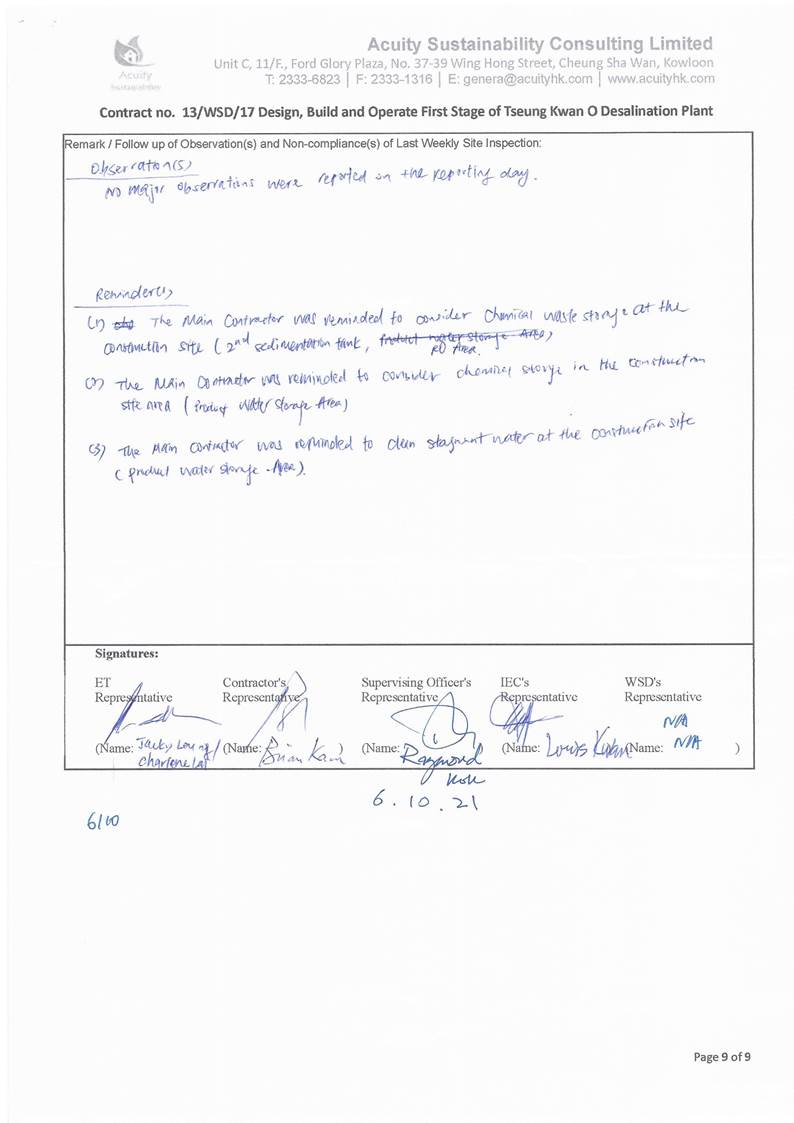 Acuity Sustainability Consulting Limited
Unit C, 11/F., Ford Glory Plaza, No. 37-39 Wing Hong Street, Cheung Sha Wan, Kowloon
T: 2333-6823 | F: 2333-1316 | E: genera@acuityhk.com | www.acuityhk.com
Acuity
Sustainability
Contract no. 13/WSD/17 Design, Build and Operate First Stage of Tseung Kwan O Desalination Plant
Remark / Follow up of Observation(s) and Non-compliance(s) of Last Weekly Site Inspection:
Observation(s)
No major observations were reported on the reporting day.
Reminder(s)
(1) The Main Contractor was reminded to consider Chemical waste storage at the
construction site (2nd sedimentation tank, product water storage Area)
RO Area.
(2) The Main Contractor was reminded to consider chemical storage in the construction
site area (Product Water Storage Area)
(3) The Main Contractor was reminded to clean stagnent water at the construction site
(product water storage Area).
Signatures:
ET Contractor's Supervising Officer's IEC's WSD's
Representative Representative Representative Representative Representative
N/A
(Name: Jacky Leung / (Name: Brian Kam ) (Name: Raymond (Name: Louis Kwan (Name: N/A )
Charlene Lai
Kok
6.10.21
6/10
Page 9 of 9